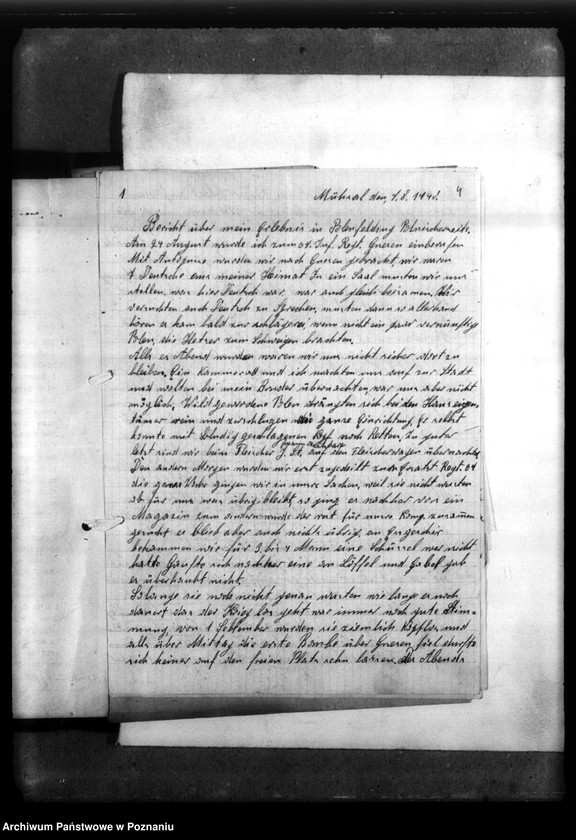 1
4
Mühtal den, 1.8. 1940.
Bericht über mein Erlebnis in Polenfeldzug Polnischerseite.
Am 24 August wurde ich zum Inf. Regt. Gnesen einberufen
Mit Autozüne wurden wir nach Gnesen gebracht wir waren
7 Deutsche aus meiner Heimat In ein Saal musten wir uns
stellen, was hier Deutsch war, war auch gleich beisamen. Wir
versuchten auch Deutsch zu Sprechen, musten dann so allerhand
hören es kam bald zur schlägerei, wenn nicht ein paar vernünftige
Polen, die Hetzer zum Schweigen brachten.
Als es Abend wurden waren wir uns nicht sicher dort zu
bleiben. Ein kammerad und ich machten uns auf zur Stadt
und wolten bei mein Bruder übernachten, war uns aber nicht
möglich. Wild gewordene Polen drängten sich beiden Haus eigen
tümer rein und zerschlugen die ganze Einrichtung. Er selbst
konnte mit bludig geschlagenen Kopf noch Retten. Zu guter
letzt sind wir beim Fleischer J. St. auf den Fleischerwagen übernachtet
Den andern Morgen wurden wir erst zugedeilt zum Ersatz Regt.
die ganze Woche gingen wir in unsre Sachen, weil sie nicht wusten
ob für uns was übrig bleibt so ging es nachher von ein
Magazin zum andern wurde der rest für unsre Komp. zusamm
gesucht es blieb aber auch nichts übrig, an Essgeschir
bekammen wir für 3 bis 4 Mann eine Schüssel wer nicht
hatte kaufte sich nachher eine an Löffel und Gabel gab
es überhaubt nicht.
Solange sie noch nicht genau wusten wie lange es noch
dauert das der Krieg los geht war immer noch gute Stim-
mung, von 1 September wurden sie ziemlich kopflos und
als über Mittag die erste Bombe über Gnesen fiel durfte
sich keiner auf den freien Platz sehn lassen. des Abends